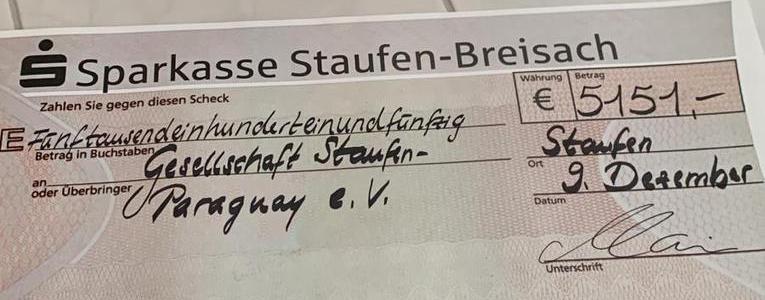 Sparkasse Staufen-Breisach
Zahlen Sie gegen diesen Scheck
Währung Betrag
€ 5151,-
E Fünftausendeinhunderteinundfünfzig
Betrag in Buchstaben
Gesellschaft Staufen-
an
oder Überbringer
Paraguay e. V.
Staufen
Ort
9. Dezember
Datum
Unterschrift